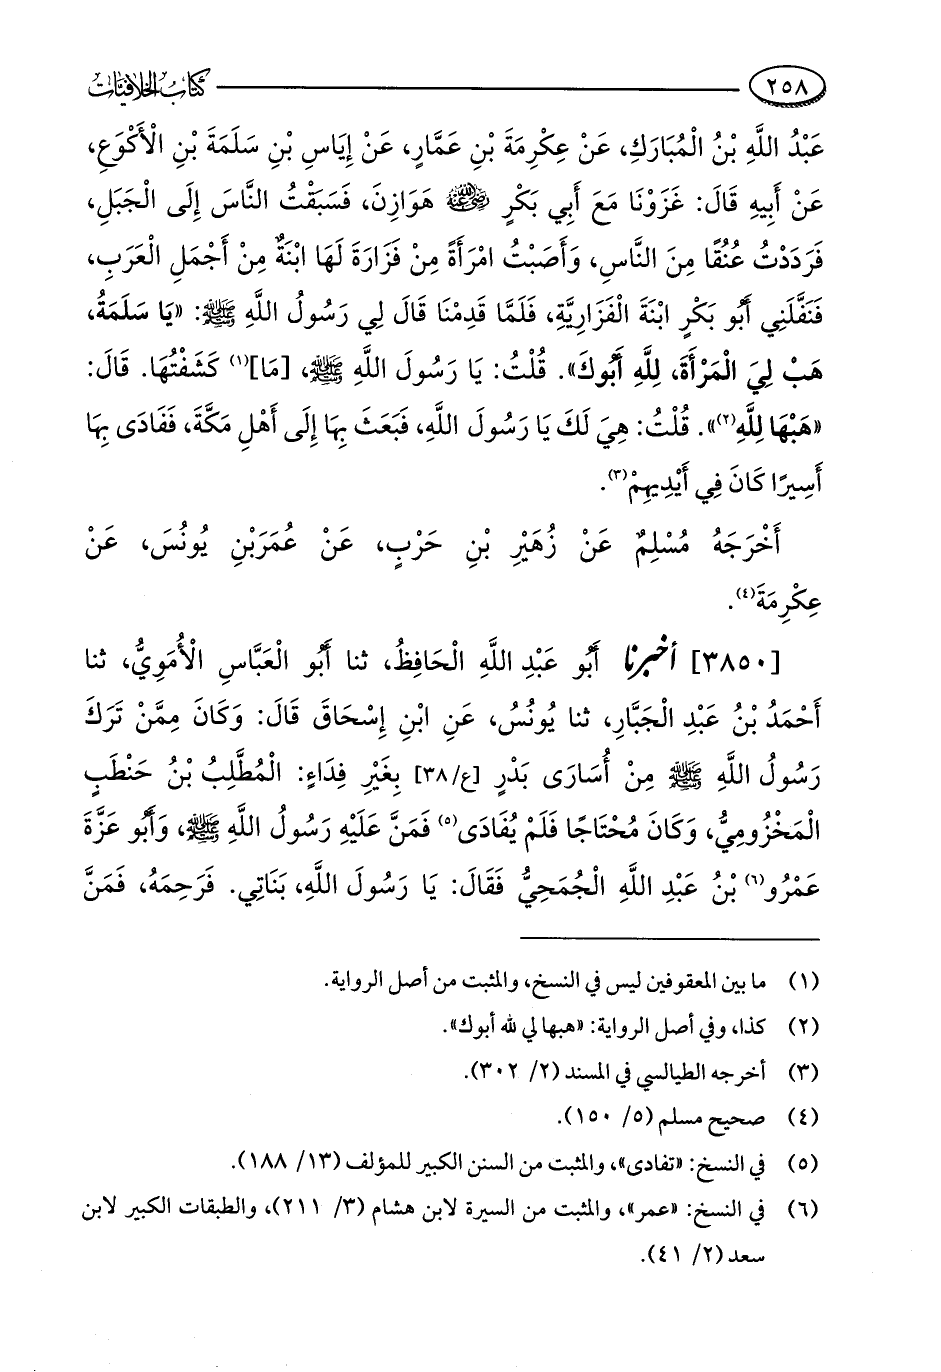 ٢٥٨
كتاب الخلافيات
عَبْدُ اللَّهِ بْنُ الْمُبَارَكِ، عَنْ عِكْرِمَةَ بْنِ عَمَّارٍ، عَنْ إِيَاسِ بْنِ سَلَمَةَ بْنِ الْأَكْوَعِ،
عَنْ أَبِيهِ قَالَ: غَزَوْنَا مَعَ أَبِي بَكْرٍ رضي الله عنه هَوَازِنَ، فَسَبَقْتُ النَّاسَ إِلَى الْجَبَلِ،
فَرَدَدْتُ عُنُقًا مِنَ النَّاسِ، وَأَصَبْتُ امْرَأَةً مِنْ فَزَارَةَ لَهَا ابْنَةٌ مِنْ أَجْمَلِ الْعَرَبِ،
فَنَفَّلَنِي أَبُو بَكْرٍ ابْنَةَ الْفَزَارِيَّةِ، فَلَمَّا قَدِمْنَا قَالَ لِي رَسُولُ اللَّهِ ﷺ: «يَا سَلَمَةُ،
هَبْ لِيَ الْمَرْأَةَ، لِلَّهِ أَبُوكَ». قُلْتُ: يَا رَسُولَ اللَّهِ ﷺ، [مَا](١) كَشَفْتُهَا. قَالَ:
«هَبْهَا لِلَّهِ(٢)». قُلْتُ: هِيَ لَكَ يَا رَسُولَ اللَّهِ، فَبَعَثَ بِهَا إِلَى أَهْلِ مَكَّةَ، فَفَادَى بِهَا
أَسِيرًا كَانَ فِي أَيْدِيهِمْ(٣).
أَخْرَجَهُ مُسْلِمٌ عَنْ زُهَيْرِ بْنِ حَرْبٍ، عَنْ عُمَرَبْنِ يُونُسَ، عَنْ
عِكْرِمَةَ(٤).
[٣٨٥٠] أخبرنا أَبُو عَبْدِ اللَّهِ الْحَافِظُ، ثنا أَبُو الْعَبَّاسِ الْأُمَوِيُّ، ثنا
أَحْمَدُ بْنُ عَبْدِ الْجَبَّارِ، ثنا يُونُسُ، عَنِ ابْنِ إِسْحَاقَ قَالَ: وَكَانَ مِمَّنْ تَرَكَ
رَسُولُ اللَّهِ ﷺ مِنْ أُسَارَى بَدْرٍ [ع/٣٨] بِغَيْرِ فِدَاءٍ: الْمُطَّلِبُ بْنُ حَنْطَبٍ
الْمَخْزُومِيُّ، وَكَانَ مُحْتَاجًا فَلَمْ يُفَادَى(٥) فَمَنَّ عَلَيْهِ رَسُولُ اللَّهِ ﷺ، وَأَبُو عَزَّةَ
عَمْرُو(٦) بْنُ عَبْدِ اللَّهِ الْجُمَحِيُّ فَقَالَ: يَا رَسُولَ اللَّهِ، بَنَاتِي. فَرَحِمَهُ، فَمَنَّ
(١) ما بين المعقوفين ليس في النسخ، والمثبت من أصل الرواية.
(٢) كذا، وفي أصل الرواية: «هبها لي لله أبوك».
(٣) أخرجه الطيالسي في المسند (٢/ ٣٠٢).
(٤) صحيح مسلم (٥/ ١٥٠).
(٥) في النسخ: «تفادى»، والمثبت من السنن الكبير للمؤلف (١٣/ ١٨٨).
(٦) في النسخ: «عمر»، والمثبت من السيرة لابن هشام (٣/ ٢١١)، والطبقات الكبير لابن
سعد (٢/ ٤١).